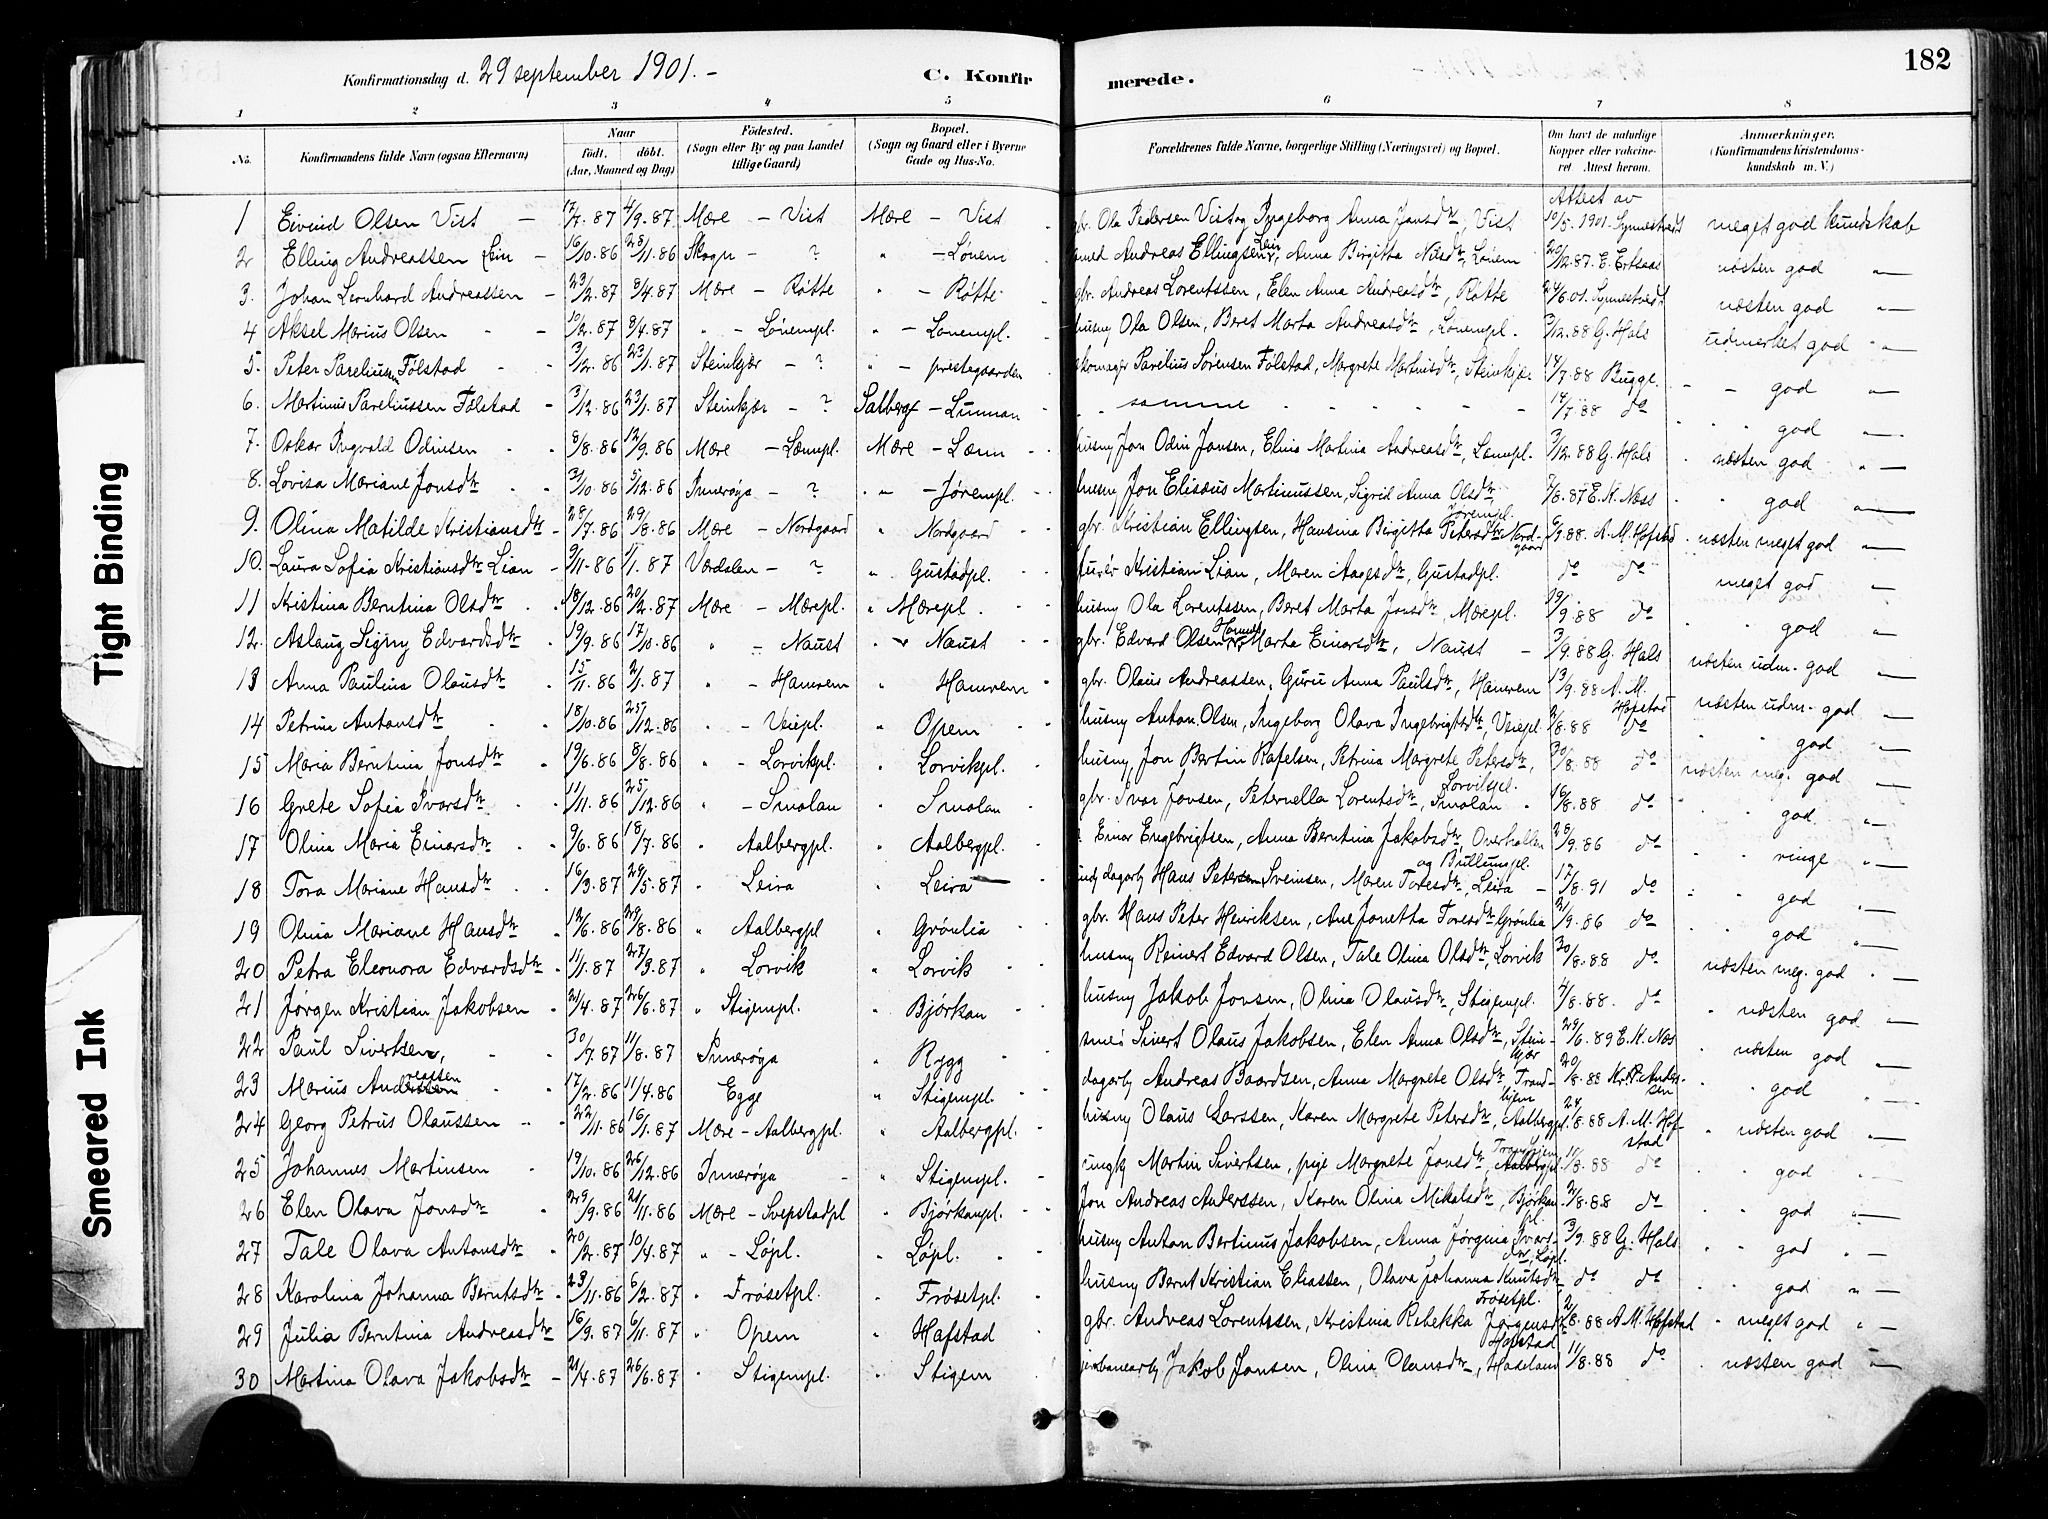 Konfirmationsdag d. 29 september 1901.- C. Konfirmerede. 182
1 2 3 4 5 6 7 8
No. Konfirmandens fulde Navn (ogsaa Efternavn) Naar født, døbt. (Aar, Maaned og Dag) Fødested. (Sogn eller By og paa Landet tillige Gaard) Bopæl. (Sogn og Gaard eller i Byerne Gade og Hus-No. Forældrenes fulde Navne, borgerlige Stilling (Næringsvei) og Bopæl. Om havt de naturlige Kopper eller vakcineret Attest herom. Anmærkninger. (Konfirmandens Kristendomskundskab m. V.)
Attest av
1 Eivind Olsen Vist 4/9.87 Mære - Vist Mære - Vist gbr. Ola Pedersen Vist og Ingeborg Anna Jonsdtr, Vist 10/5.1901. Synnestvedt meget god kundskab
2 Elling Andreassen Lein 16/10.86 28/11.86 Skogn - ? " - Lønem Andreas Ellingsen Lein, Anna Birgitta Nilsdtr, Lønem 20/12.87. næsten god
3. Johan Leonhard Andreassen 23/2.87 8/4.87 Mære - Røtte " - Røtte gbr. Andreas Lorentssen, Elen Anna Andreasdtr, Røtte 24/6.01. Synnestvedt næsten god
4 Aksel Marius Olsen 10/2.87 8/4.87 " - Lønempl. " - Lønempl. husmy Ola Olsen, Beret Marta Andreasdtr, Lønempl. 3/12.88 G. Hals udmerket god
5. Peter Pareliussen Følstad 3/12.86 23/1.87 Steinkjær - ? " - prestegaarden skomager Parelius Sørensen Følstad, Margrete Martinsdtr, Steinkjær 14/7.88 Bugge. god
6. Martinus Pareliussen Følstad 3/12.86 23/1.87 Steinkjær - ? Salberg - Lunnan samme 14/7.88 do god
7. Oskar Ingvald Odinsen 8/8.86 12/9.86 Mære - Læmpl. Mære - Læin husmy Jon Odin Jonsen, Elina Martina Andreasdtr, Læmpl. 3/12.88 G. Hals næsten god
8. Lovisa Mariane Jonsdtr 3/10.86 5/12.86 Inderøya - ? " - Jørempl. husmy Jon Elisæus Martinussen, Sigrid Anna Olsdtr Jørempl. 7/8.87 E. K. Næss god
9. Olina Matilde Kristiansdtr 28/7.86 29/8.86 Mære - Nordgaard " Nordgaard gbr. Kristian Ellingsen, Hansina Birgitta Petersdtr Nordgaard 6/9.88. A. M. Hofstad næsten meget god
10. Laura Sofia Kristiansdtr Lian 9/11.86 1/1.87 Værdalen - ? " Gustadpl. Kristian Lian, Maren Aagesdtr, Gustadpl. do do meget god
11 Kristina Berntina Olsdtr 18/12.86 20/2.87 Mære - Mærepl. " Mærepl. husmy Ola Lorentssen, Beret Marta Jonsdtr, Mærepl. 19/9.88 do god
12. Aslaug Signy Edvardsdtr 19/9.86 17/10.86 " - Naust " Naust gbr. Edvard Olsen, Marta Einarsdtr, Naust 3/9.88 G. Hals næsten udm. god
13 Anna Paulina Olausdtr 15/11.86 2/1.87 " - Hamrem " Hamrem gbr. Olaus Andreassen, Guru Anna Paulsdtr, Hamrem 13/9.88 A. M. Hofstad næsten udm. god
14 Petrina Antonsdtr 18/10.86 25/12.86 " - Veiepl. " Opem husmy Anton Olsen, Ingeborg Olava Ingebrigtsdtr, Veiepl. 2/8.88 do god
15 Maria Berntina Jonsdtr 19/6.86 8/8.86 " - Lorvikpl. " Lorvikpl. husmy Jon Bertin Rafelsen, Petrina Margrete Petersdtr, Lorvikpl. 30/8.88 do næsten meg. god
16 Grete Sofia Ivarsdtr 11/11.86 25/12.86 " - Smolan " Smolan gbr. Ivar Jonsen, Peternella Lorentsdtr, Smolan 16/8.88 do god
17 Olina Maria Einarsdtr 9/6.86 18/7.86 " Aalbergpl. " Aalbergpl. Einar Engebrigtsen, Anna Berntina Jakobsdtr, Overhallen og Bullungpl. 28/9.86 do ringe
18 Tora Mariane Hansdtr 16/3.87 29/5.87 " Leira " Leira dagarb Hans Petersen Sveinsen, Maren Toresdtr, Leira 17/8.91 do god
19 Olina Mariane Hansdtr 12/6.86 29/8.86 " Aalbergpl " Grønlia gbr. Hans Peter Henriksen, Ane Jonetta Toresdtr Grønlia 21/9.86 do god
20 Petra Eleonora Edvardsdtr 11/11.87 27/3.87 " Lorvik " Lorvik husmy Reinert Edvard Olsen, Tale Olina Olsdtr, Lorvik 30/8.88 do næsten meg. god
21 Jørgen Kristian Jakobsen 21/4.87 26/6.87 " Stigempl. " Bjørkan husmy Jakob Jonsen, Olina Olausdtr, Stigempl. 4/8.88. do næsten god
22 Paul Sivertsen, 30/7.87 11/8.87 Inderøya " Rygg smed Sivert Olaus Jakobsen, Elen Anna Olsdtr, Steinkjær 29/6.89 E. K. Næs næsten god
23 Marius Andreassen 17/2.86 11/4.86 Egge " Stigempl. dagarb Andreas Baardsen, Anna Margrete Olsdtr, Trondhjem 20/8.88 Kr. P. Anderssen god
24 Georg Petrus Olaussen 22/11.86 16/1.87 Mære - Aalbergpl. " Aalbergpl. husmy Olaus Larssen, Karen Margrete Petersdtr, Aalbergpl. 24/8.88 A. M. Hofstad næsten god
25 Johannes Martinsen 19/10.86 26/12.86 Inderøya " Stigempl. ungk Martin Sivertsen, pige Margrete Jonsdtr, Aalbergpl. 11/8.88 do god
26 Elen Olava Jonsdtr 29/9.86 21/11.86 Mære - Svepstadpl " Bjørkanpl. Jon Andreas Anderssen, Karen Olina Mikalsdtr, Bjørkanpl. 2/8.88 do god
27 Tale Olava Antonsdtr 20/2.87 10/4.87 " - Løpl. " Løpl. husmy Anton Bertinus Jakobsen, Anna Jørgina Ivarsdtr, Løpl. 3/9.88 G. Hals god
28 Karolina Johanna Berntsdtr 23/11.86 6/2.87 " Frøsetpl. " Frøsetpl. husmy Bernt Kristian Eliassen, Olava Johanna Knutsdtr, Frøsetpl. do do god
29 Julia Berntina Andreasdtr 16/9.87 6/11.87 " Opem " Hafstad gbr. Andreas Lorentsen, Kristina Rebekka Jørgensdtr Hafstad 2/8.88 A. M. Hofstad meget god
30 Martina Olava Jakobsdtr 21/4.87 26/6.87 " Stigempl. " Stigem jernbanearb Jakob Jonsen, Olina Olausdtr, 11/8.88 do næsten god
Tight Binding
Smeared Ink